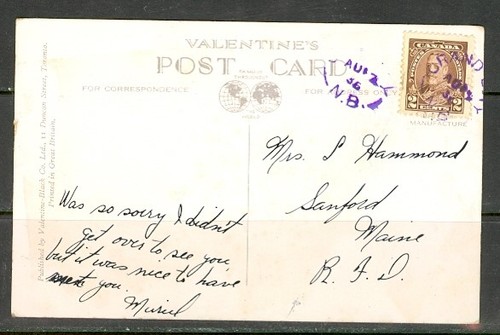 VALENTINE'S
POST CARD
FOR CORRESPONDENCE
FOR
CANADA
2 CENTS 2
AU
36
N.B.
MANUFACTURE
Published by Valentine-Black Co., Ltd., 11 Duncan Street, Toronto.
Printed in Great Britain.
Mrs. S Hammond
Sanford
Maine
R. F. D.
Was so sorry I didn't
get over to see you
but it was nice to have
met you.
Muriel